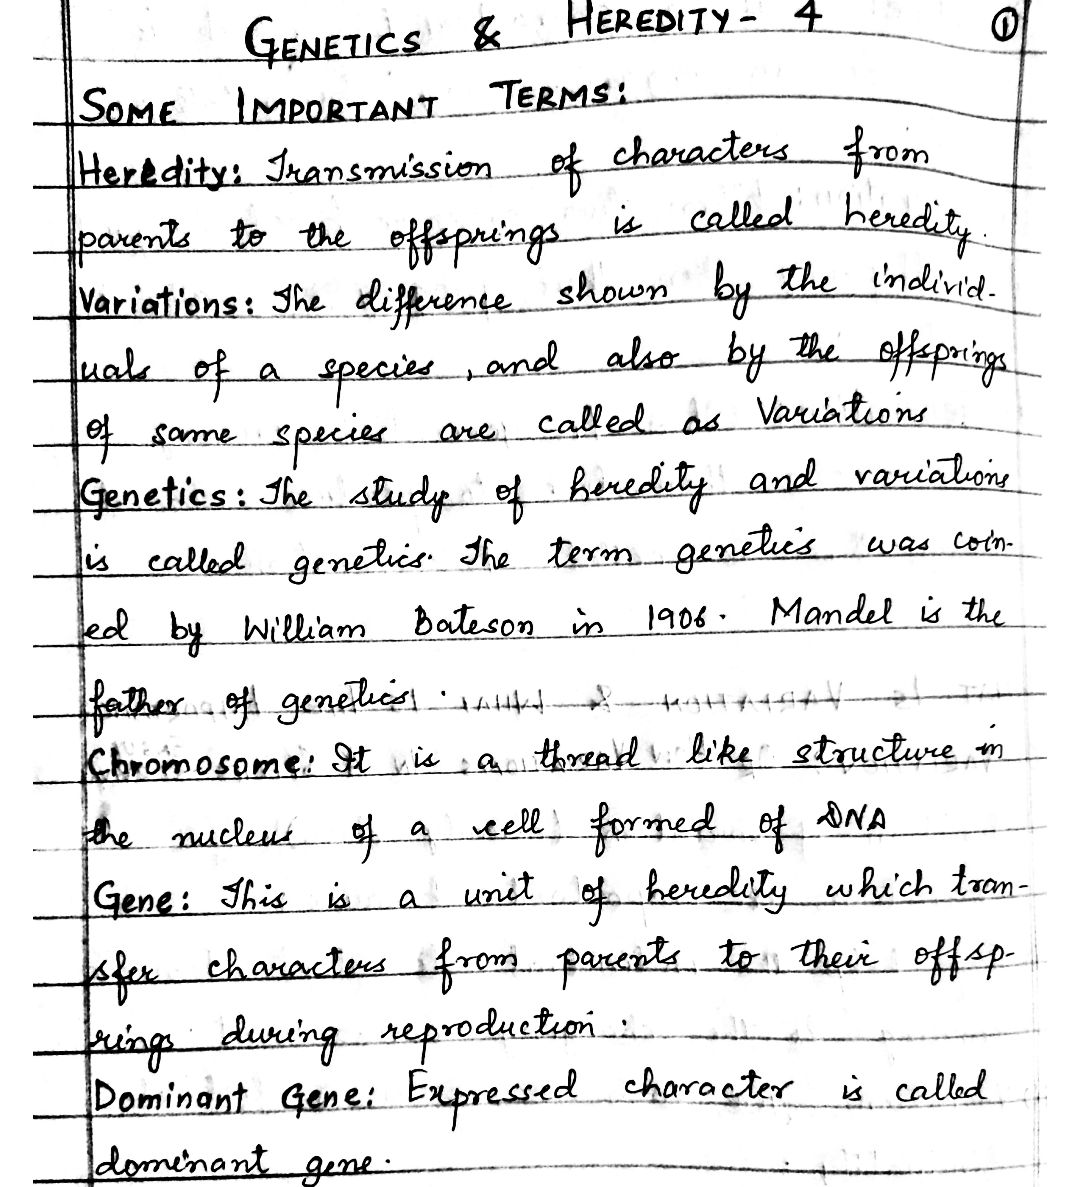 GENETICS & HEREDITY - 4 ①
SOME IMPORTANT TERMS:
Heredity: Transmission of characters from
parents to the offsprings is called heredity.
Variations: The difference shown by the individ-
uals of a species, and also by the offsprings
of same species are called as Variations
Genetics: The study of heredity and variations
is called genetics. The term genetics was coin-
ed by William Bateson in 1906. Mandel is the
father of genetics.
Chromosome: It is a thread like structure in
the nucleus of a cell formed of DNA
Gene: This is a unit of heredity which tran-
sfer characters from parents to their offsp-
rings during reproduction.
Dominant Gene: Expressed character is called
dominant gene.